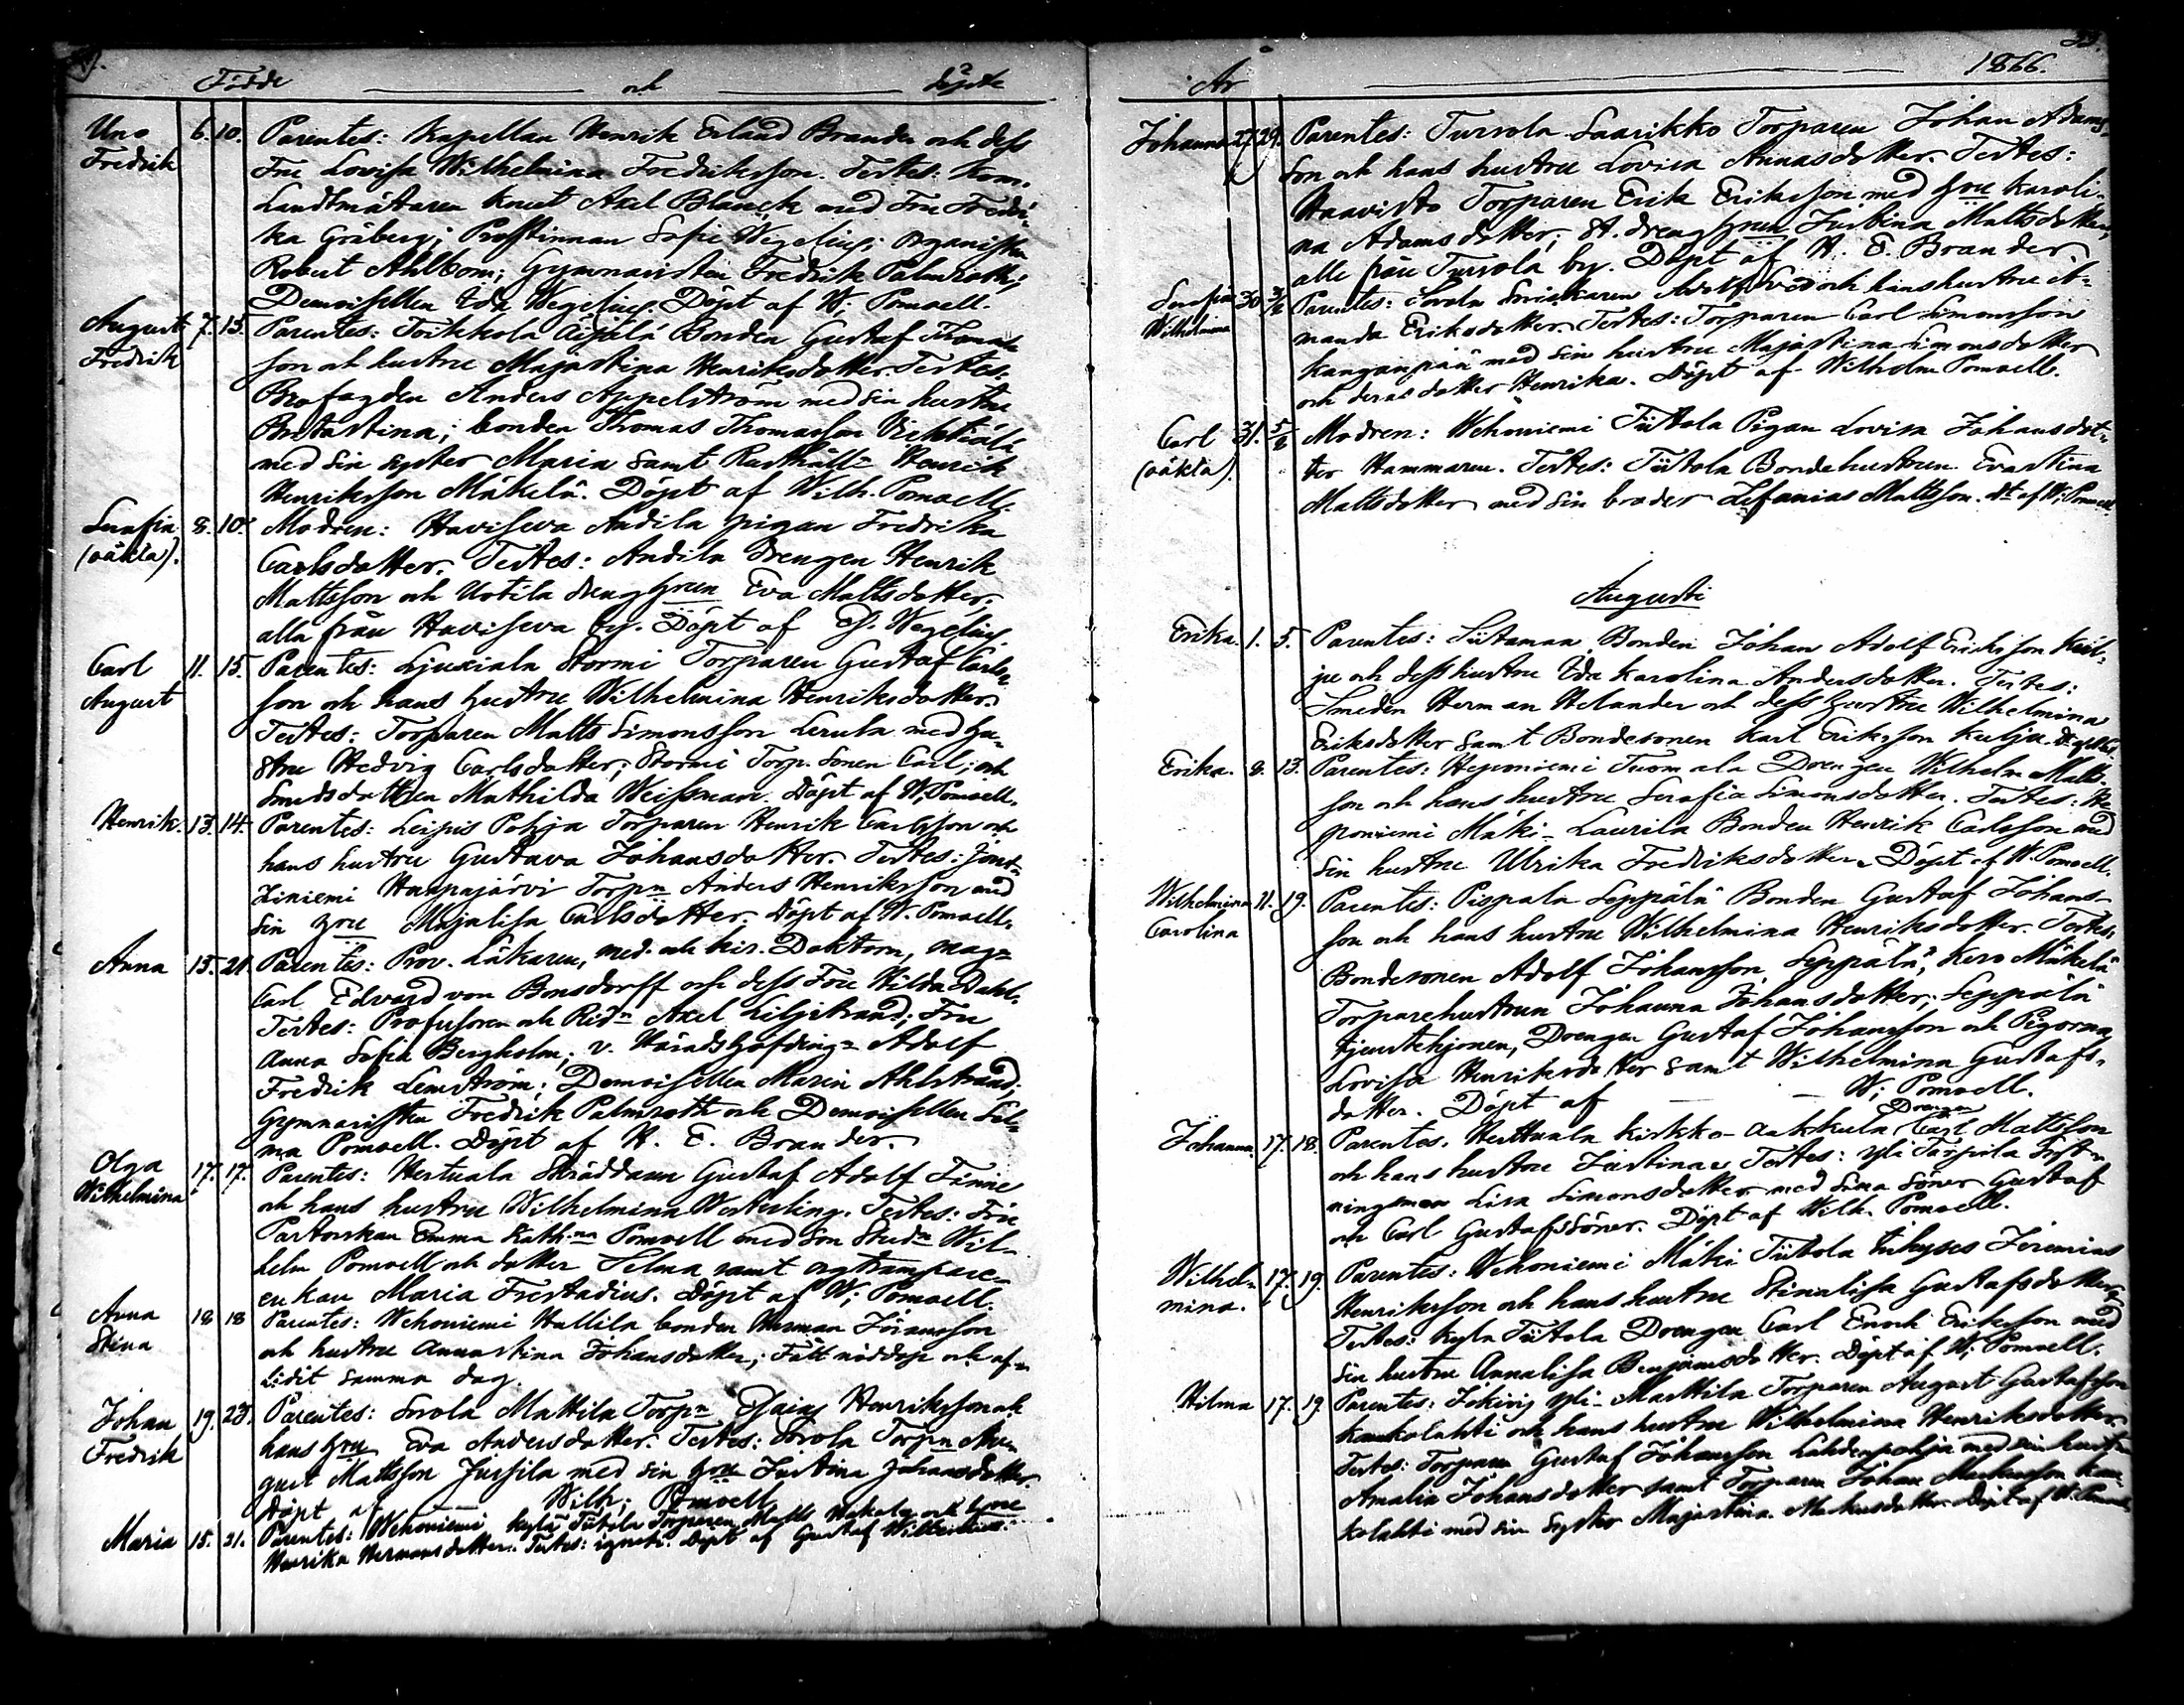 Födde och döpte
Uno Fredrik 6. 10. Parentes: Kapellan Henrik Erland Brander och dess
Fru Lovisa Wilhelmina Fredriksson. Testes: Kom.
Landtmätaren Knut Axel Blanck med Fru Fredri-
ka Gråberg; Prostinnan Sofie Wegelius; Organisten
Robert Ahlbom; Gymnasisten Fredrik Palmroth;
Demoisellen Ida Wegelius. Döpt af W. Pomoell.
August Fredrik 7. 15. Parentes: Toikkola Äijälä Bonden Gustaf Thomas
son och hustru Majastina Henriksdotter. Testes:
Brofogden Anders Appelström med sin hustru
Britastina; bonden Thomas Thomasson
med sin syster Maria samt Rusthåll: Henrik
Henriksson Mäkelä. Döpt af Wilh. Pomoell.
Serafia (oäkta). 8. 10. Modren: Haviseva Andila pigan Fredrika
Carlsdotter. Testes: Andila drengen Henrik
Mattsson och Uotila drenghrun Eva Mattsdotter,
alla från Haviseva by. Döpt af Wegelius.
Carl August 11. 15. Parentes: Ljuxiala Stormi Torparen Gustaf Carls-
son och hans hustru Wilhelmina Henriksdotter.
Testes: Torparen Matts Simonsson Lerula med hu-
stru Hedvig Carlsdotter; Stormi Torp. Sonen Carl; och
Smedsdottren Mathilda Weissman. Döpt af W. Pomoell.
Henrik. 13. 14. Parentes: Leipis Pohja Torparen Henrik Carlsson och
hans hustru Gustava Johansdotter. Testes:
Haapajärvi Torpn Anders Henriksson med
sin hru Majalisa Carlsdotter. Döpt af W. Pomoell.
Anna 15. 21. Parentes: Prov. Läkaren, med. och kir. Doktorn, mag=
Carl Edvard von Bonsdorff och dess Fru Hilda Dahl.
Testes: Professoren och Ridn Axel Liljestrand; Fru
Anna Sofia Bergholm; v. Häradshöfding= Adolf
Fredrik Lemström; Demoisellen Maria Ahlstrand;
Gymnasisten Fredrik Palmroth och Demoisellen Sel-
ma Pomoell. Döpt af H. E. Brander.
Olga Wilhelmina 17. 17. Parentes: Hertuala Skräddaren Gustaf Adolf Finne
och hans hustru Wilhelmina Westerling. Testes: Fru
Pastorskan Emma Kath:na Pomoell med son Studn Wil-
helm Pomoell och dotter Selma samt
Maria Frestadius. Döpt af W; Pomoell.
Anna Stina 18 18 Parentes: Wehoniemi Hallila bonden Herman Göransson
och hustru Annastina Johansdotter; Fått nöddop och af-
lidit samma dag.
Johan Fredrik 19. 23. Parentes: Sorola Mattila Torpn Esaias Henriksson och
hans hru Eva Andersdotter. Testes: Sorola Torpn Au-
gust Mattsson Jussila med sin hru Justina Johansdotter.
Döpt af Wilh; Pomoell.
Maria 15. 21. Parentes: Wehoniemi Kylä Tiitola Torparen Matts och hru
Henrika Hermansdotter. Testes: ignoti. Döpt af Gustaf
År 1866.
Johanna 27. 29. Parentes: Tursola Saarikko Torparen Johan Adams-
son och hans hustru Lovisa Annasdotter. Testes:
Haavisto Torparen Erik Eriksson med hru Karoli-
na Adamsdotter; St. drenghrun Justina Mattsdotter,
alle från Tursola by. Döpt af H. E. Brander
Serafia Wilhelmina 30 3/8 Parentes: Sorola Adolf och hans hustru A-
manda Eriksdotter. Testes: Torparen Carl Simonsson
Kangaspää med sin hustru Majastina Simonsdotter
och deras dotter Henrika. Döpt af Wilhelm Pomoell.
Carl (oäkta). 31. 5/8 Modren: Wehoniemi Tiitola Pigan Lovisa Johansdot-
ter Hammaren. Testes: Tiitola Bondehustrun Evastina
Mattsdotter med sin broder Zefanias Mattsson. Dt af W; Pomoell.
Augusti
Erika. 1. 5. Parentes: Liitamaa Bonden Johan Adolf Eriksson Keil-
ju och dess hustru Ida Karolina Andersdotter. Testes:
Smeden Herman Helander och dess hustru Wilhelmina
Eriksdotter samt Bondesonen Karl Eriksson
Erika. 8. 13. Parentes: Heponiemi Tuomala Drengen Wilhelm Matts-
son och hans hustru Serafia Simonsdotter. Testes: He-
poniemi Mäki-Laurila Bonden Henrik Carlsson med
sin hustru Ulrika Fredriksdotter. Döpt af W. Pomoell.
Wilhelmina Carolina 11. 19. Parentes: Pispala Seppälä Bonden Gustaf Johans-
son och hans hustru Wilhelmina Henriksdotter. Testes:
Bondesonen Adolf Johansson Seppälä, Kero Mäkelä
Torparehustrun Johanna Johansdotter; Seppälä
tjenstehjonen, Drengen Gustaf Johansson och Pigorna
Lovisa Henriksdotter samt Wilhelmina Gustafs-
dotter. Döpt af W; Pomoell.
Johanna 17. 18. Parentes. Herttuala Kirkko-Aukkula Drengen Carl Mattsson
och hans hustru Justina. Testes: Yli Tarpila
Lisa Simonsdotter med sina söner Gustaf
och Carl Gustafssöner. Döpt af Wilh. Pomoell.
Wilhel-mina. 17. 19. Parentes: Wehoniemi Mäki Tiitola Inhyses Jeremias
Henriksson och hans hustru Stinalisa Gustafsdotter.
Testes: Kylä Tiitola Drengen Carl Enoch Eriksson med
sin hustru Annalisa Benjamsdotter. Döpt af W; Pomoell.
Hilma 17. 19 Parentes: Jokioij Yli-Marttila Torparen August Gustafsson
Kaukolahti och hans hustru Wilhelmina Henriksdotter.
Testes: Torparen Gustaf Johansson Lahdenpohja med sin hustru
Amalia Johansdotter samt Torparen Johan Markusson Kau-
kolahti med sin syster Majastina Markusdotter. Döpt af W. Pomoell.